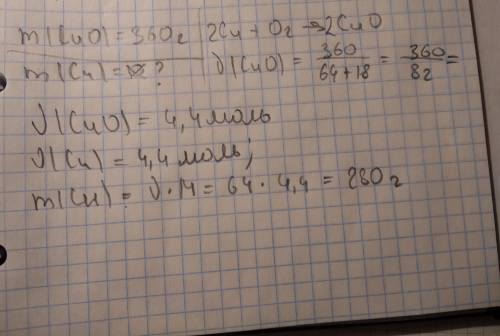 m(CuO) = 360г | 2Cu + O₂ → 2CuO
m(Cu) = ? | ν(CuO) = 360/64+18 = 360/82 =
ν(CuO) = 4,4 моль
ν(Cu) = 4,4 моль;
m(Cu) = ν · M = 64 · 4,4 = 280г